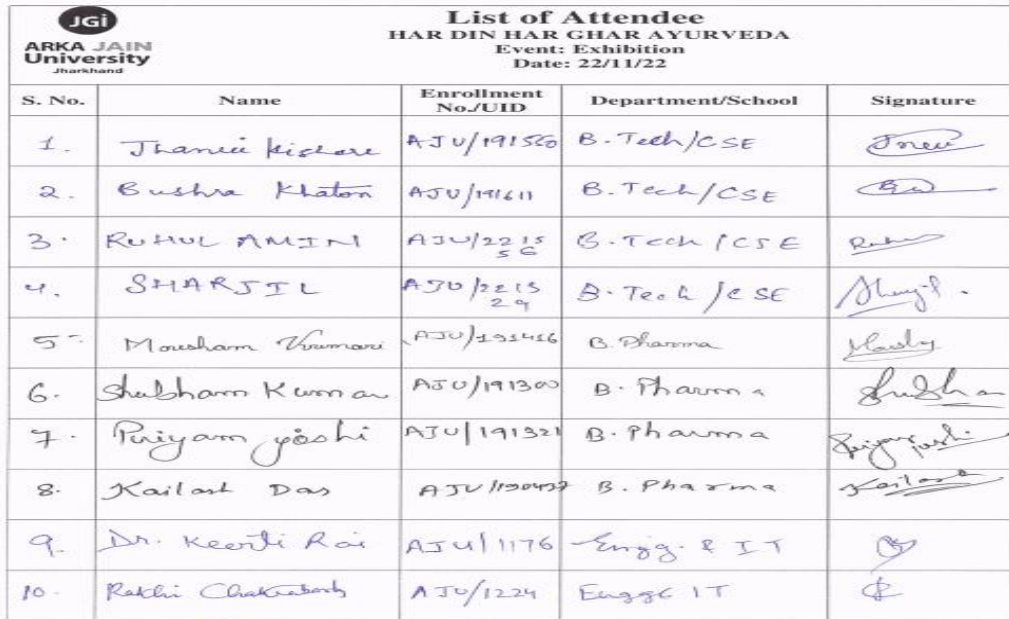 JGi
ARKA JAIN
University
Jharkhand
List of Attendee
HAR DIN HAR GHAR AYURVEDA
Event: Exhibition
Date: 22/11/22
S. No. Name Enrollment No./UID Department/School Signature
1. Kishore AJU/191560 B.Tech/CSE
2. Bushra Khaton AJU/191611 B.Tech/CSE
3. RUHUL AMIN AJU/221556 B.Tech/CSE
4. SHARJIL AJU/221529 B.Tech/CSE
5. Mousham B.Pharma
6. Shubham Kumar AJU/191300 B.Pharma Shubham
7. Priyam joshi AJU/191321 B.Pharma
8. Kailash Das AJU/190437 B.Pharma Kailash
9. Dr. Keerti Rai AJU/1176 Engg. & IT
10. Rakhi Chakraborty AJU/1224 Engg& IT